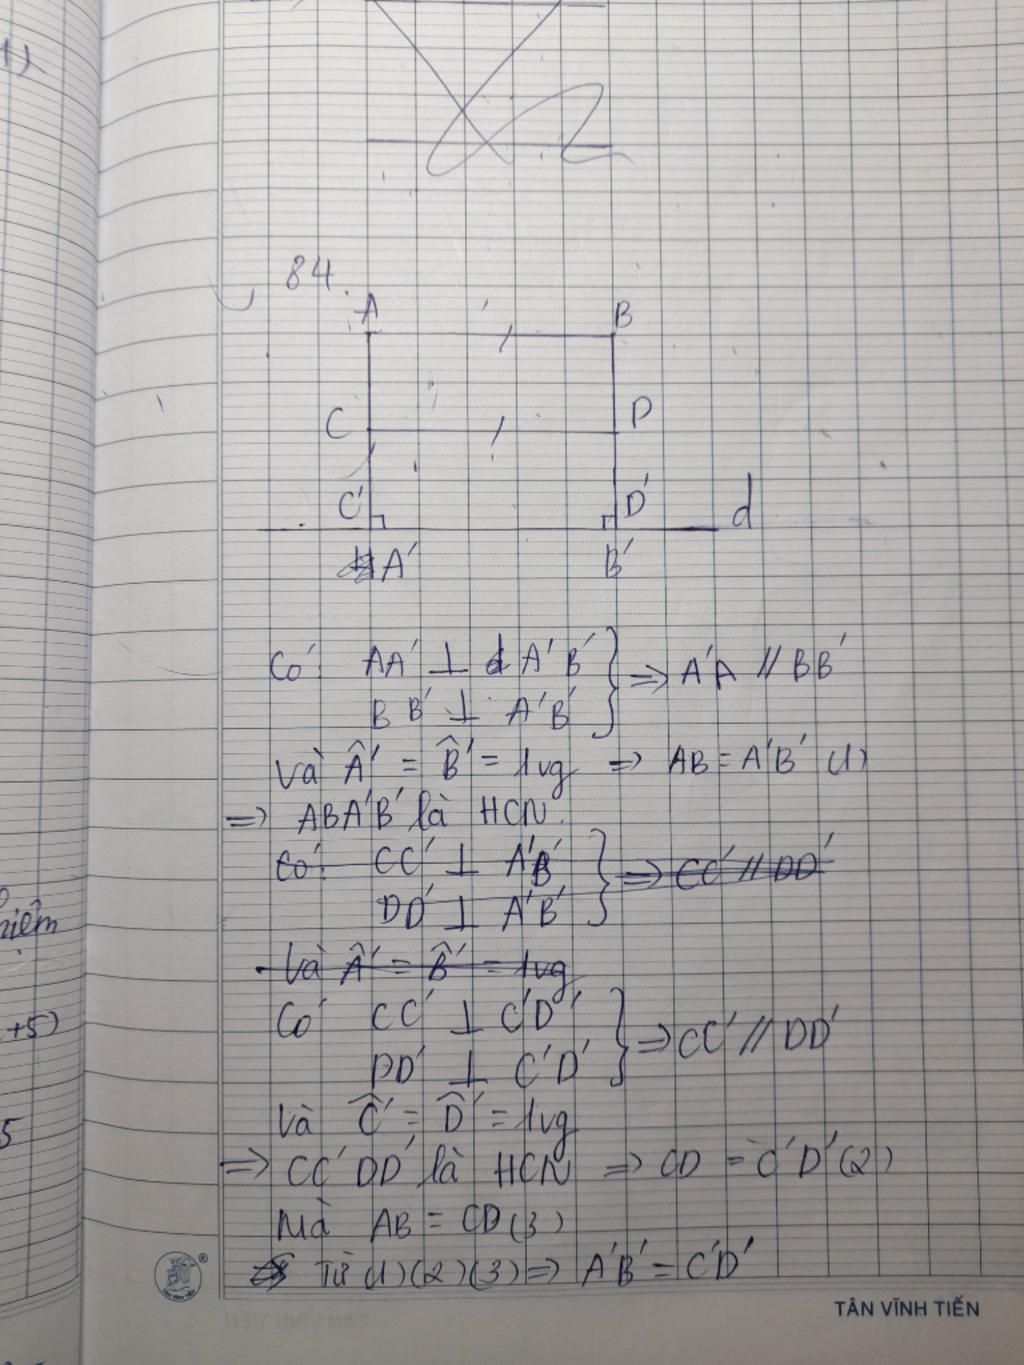 84.
A B
C D
C' D' d
A' B'
Có: AA' ⊥ A'B' } ⇒ A'A // BB'
BB' ⊥ A'B'
Và Â' = B̂' = 1vg ⇒ AB = A'B' (1)
⇒ ABA'B' là HCN.
Có: CC' ⊥ A'B' } ⇒ CC' // DD'
DD' ⊥ A'B'
Và Â' = B̂' = 1vg
Có CC' ⊥ C'D' } ⇒ CC' // DD'
DD' ⊥ C'D'
Và Ĉ' = D̂' = 1vg
⇒ CC'DD' là HCN ⇒ CD = C'D' (2)
Mà AB = CD (3)
Từ (1) (2) (3) ⇒ A'B' = C'D'
+5)
5
TÂN VĨNH TIẾN